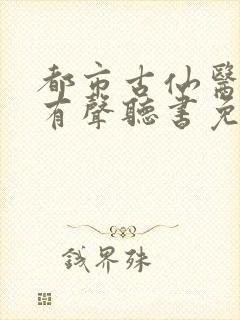 都市古仙醫
有聲聽書免
钱界殊